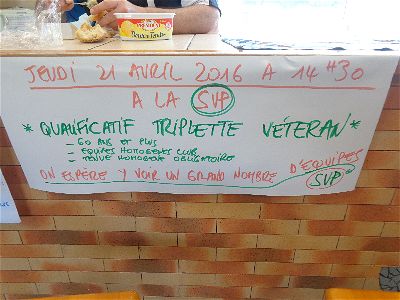 JEUDI 21 AVRIL 2016 A 14H30
A LA SVP
* QUALIFICATIF TRIPLETTE VÉTERAN *
- 60 ANS ET PLUS
- EQUIPES HOMOGENES CLUB
- TENUE HOMOGENE OBLIGATOIRE
ON ESPÈRE Y VOIR UN GRAND NOMBRE D'EQUIPES
SVP